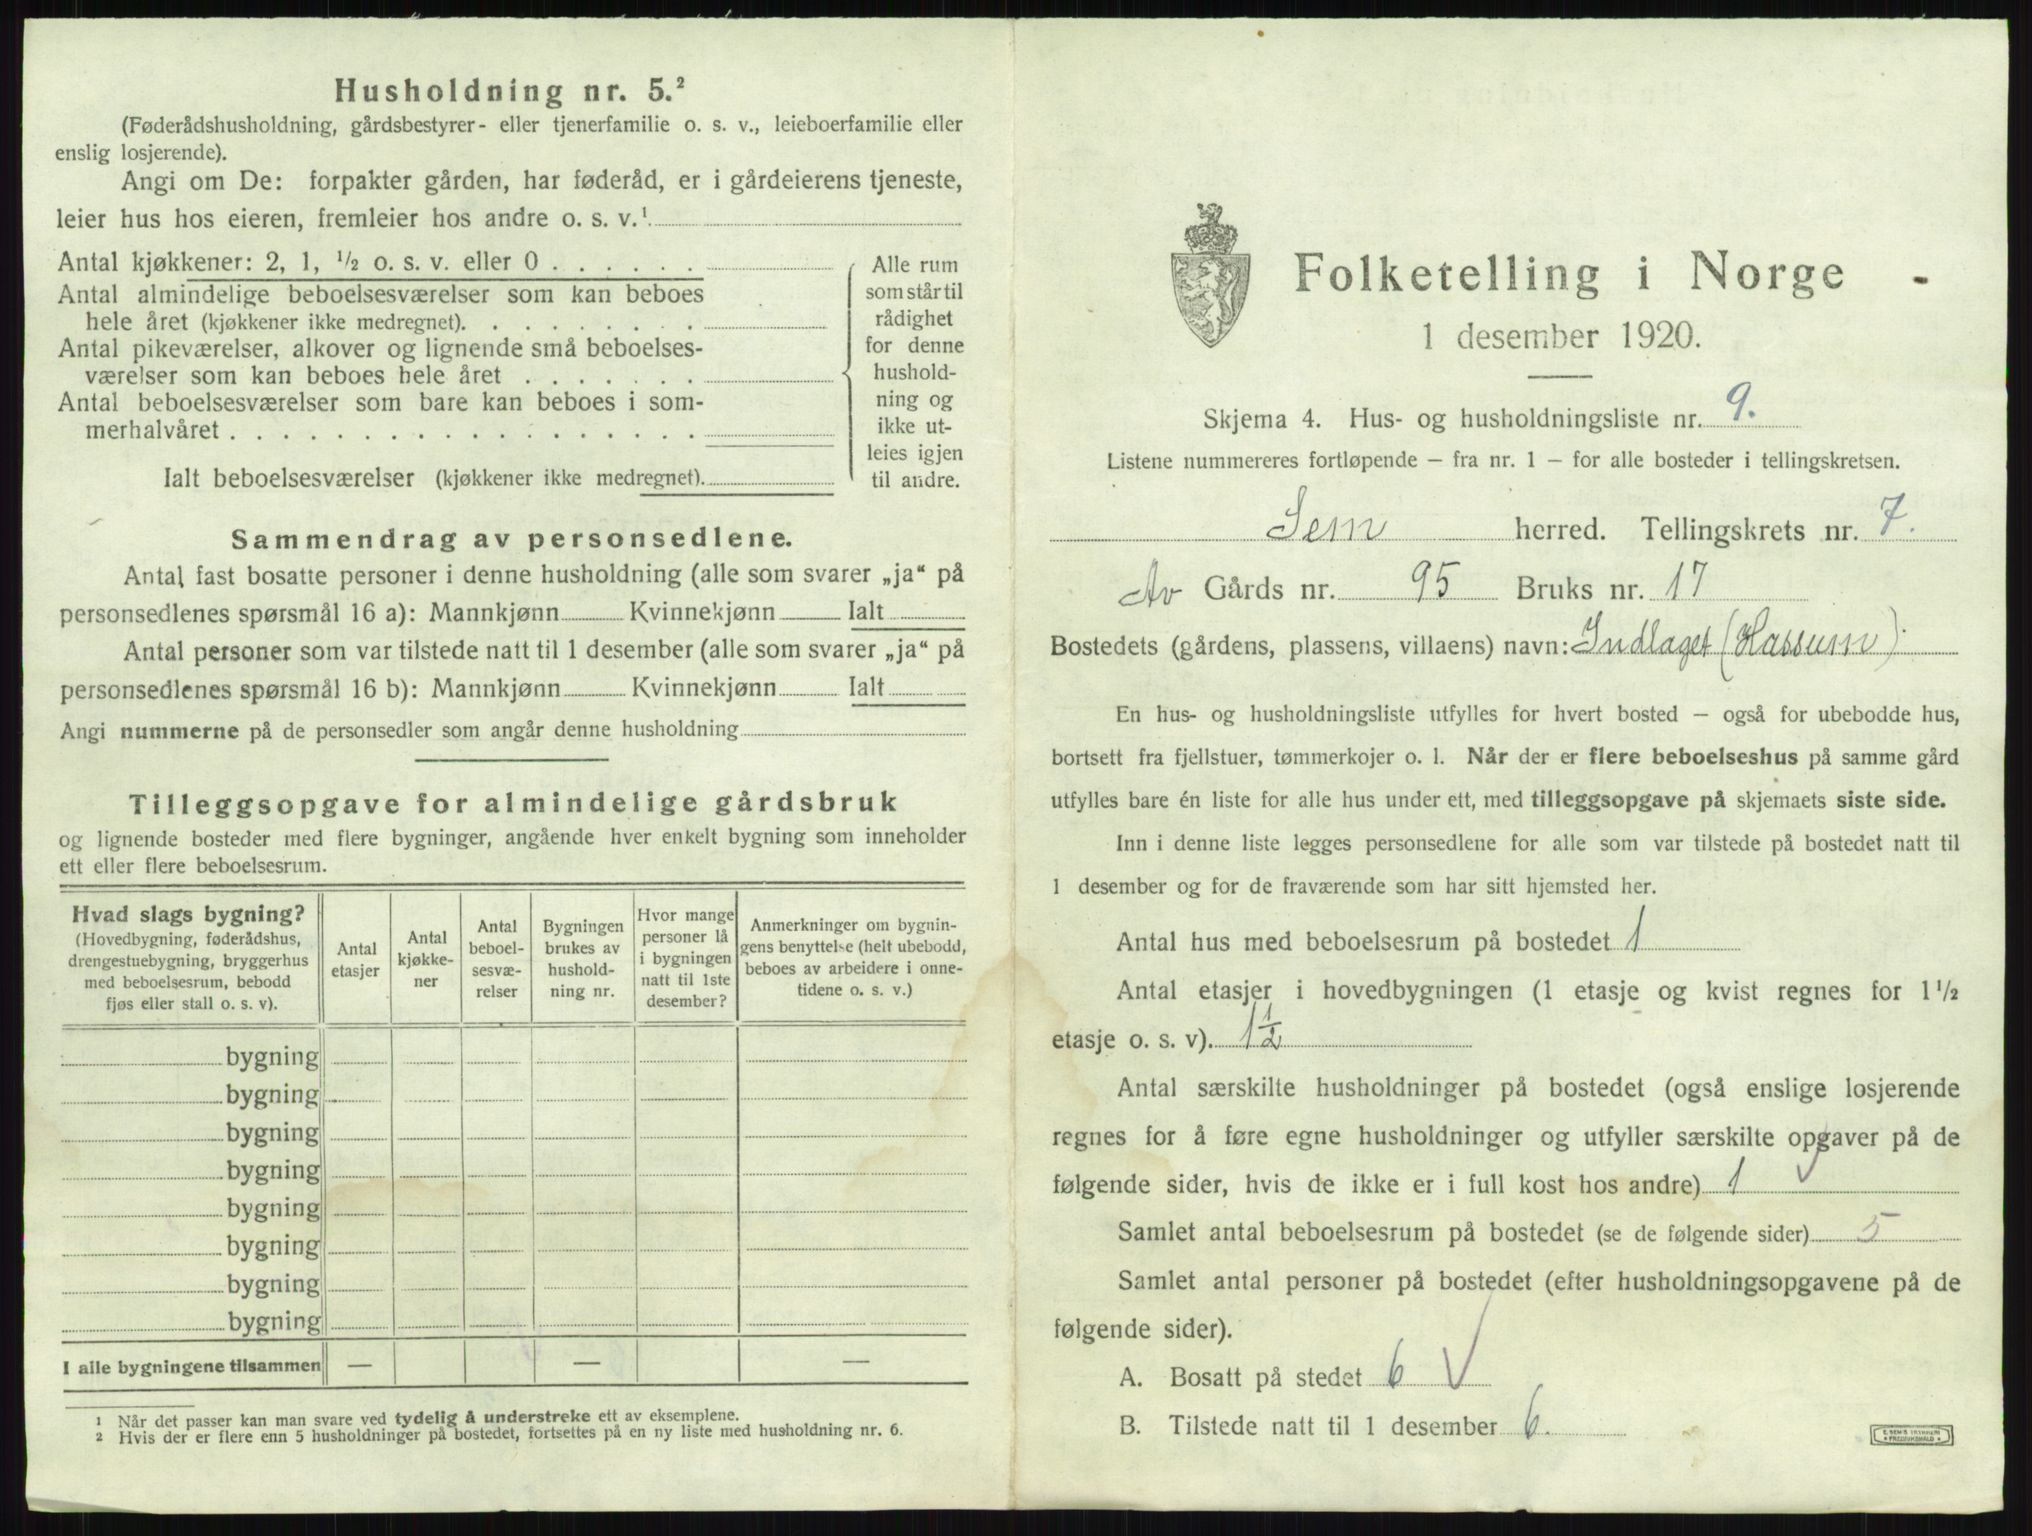 Husholdning nr. 5.²
(Føderådshusholdning, gårdsbestyrer- eller tjenerfamilie o. s. v., leieboerfamilie eller
enslig losjerende).
Angi om De: forpakter gården, har føderåd, er i gårdeierens tjeneste,
leier hus hos eieren, fremleier hos andre o. s. v.¹
Antal kjøkkener: 2, 1, ½ o. s. v. eller 0 . . . . . .
Antal almindelige beboelsesværelser som kan beboes
hele året (kjøkkener ikke medregnet). . . . . . . . .
Antal pikeværelser, alkover og lignende små beboelses-
værelser som kan beboes hele året . . . . . . .
Antal beboelsesværelser som bare kan beboes i som-
merhalvåret . . . . . . . . . . . . . . . . . .
Ialt beboelsesværelser (kjøkkener ikke medregnet).
Alle rum
som står til
rådighet
for denne
hushold-
ning og
ikke ut-
leies igjen
til andre.
Sammendrag av personsedlene.
Antal fast bosatte personer i denne husholdning (alle som svarer „ja“ på
personsedlenes spørsmål 16 a): Mannkjønn Kvinnekjønn Ialt
Antal personer som var tilstede natt til 1 desember (alle som svarer „ja“ på
personsedlenes spørsmål 16 b): Mannkjønn Kvinnekjønn Ialt
Angi nummerne på de personsedler som angår denne husholdning
Tilleggsopgave for almindelige gårdsbruk
og lignende bosteder med flere bygninger, angående hver enkelt bygning som inneholder
ett eller flere beboelsesrum.
Hvad slags bygning?
(Hovedbygning, føderådshus,
drengestuebygning, bryggerhus
med beboelsesrum, bebodd
fjøs eller stall o. s. v).
Antal
etasjer
Antal
kjøkke-
ner
Antal
beboel-
sesvæ-
relser
Bygningen
brukes av
hushold-
ning nr.
Hvor mange
personer lå
i bygningen
natt til 1ste
desember?
Anmerkninger om bygnin-
gens benyttelse (helt ubebodd,
beboes av arbeidere i onne-
tidene o. s. v.)
bygning
bygning
bygning
bygning
bygning
bygning
bygning
bygning
I alle bygningene tilsammen — — —
¹ Når det passer kan man svare ved tydelig å understreke ett av eksemplene.
² Hvis der er flere enn 5 husholdninger på bostedet, fortsettes på en ny liste med husholdning nr. 6.
Folketelling i Norge
1 desember 1920.
Skjema 4. Hus- og husholdningsliste nr. 9.
Listene nummereres fortløpende – fra nr. 1 – for alle bosteder i tellingskretsen.
Sem herred. Tellingskrets nr. 7.
Av Gårds nr. 95 Bruks nr. 17
Bostedets (gårdens, plassens, villaens) navn: Indlaget (Hassum).
En hus- og husholdningsliste utfylles for hvert bosted – også for ubebodde hus,
bortsett fra fjellstuer, tømmerkojer o. l. Når der er flere beboelseshus på samme gård
utfylles bare én liste for alle hus under ett, med tilleggsopgave på skjemaets siste side.
Inn i denne liste legges personsedlene for alle som var tilstede på bostedet natt til
1 desember og for de fraværende som har sitt hjemsted her.
Antal hus med beboelsesrum på bostedet 1
Antal etasjer i hovedbygningen (1 etasje og kvist regnes for 1½
etasje o. s. v). 1½
Antal særskilte husholdninger på bostedet (også enslige losjerende
regnes for å føre egne husholdninger og utfyller særskilte opgaver på de
følgende sider, hvis de ikke er i full kost hos andre) 1
Samlet antal beboelsesrum på bostedet (se de følgende sider) 5
Samlet antal personer på bostedet (efter husholdningsopgavene på de
følgende sider).
A. Bosatt på stedet 6
B. Tilstede natt til 1 desember 6.